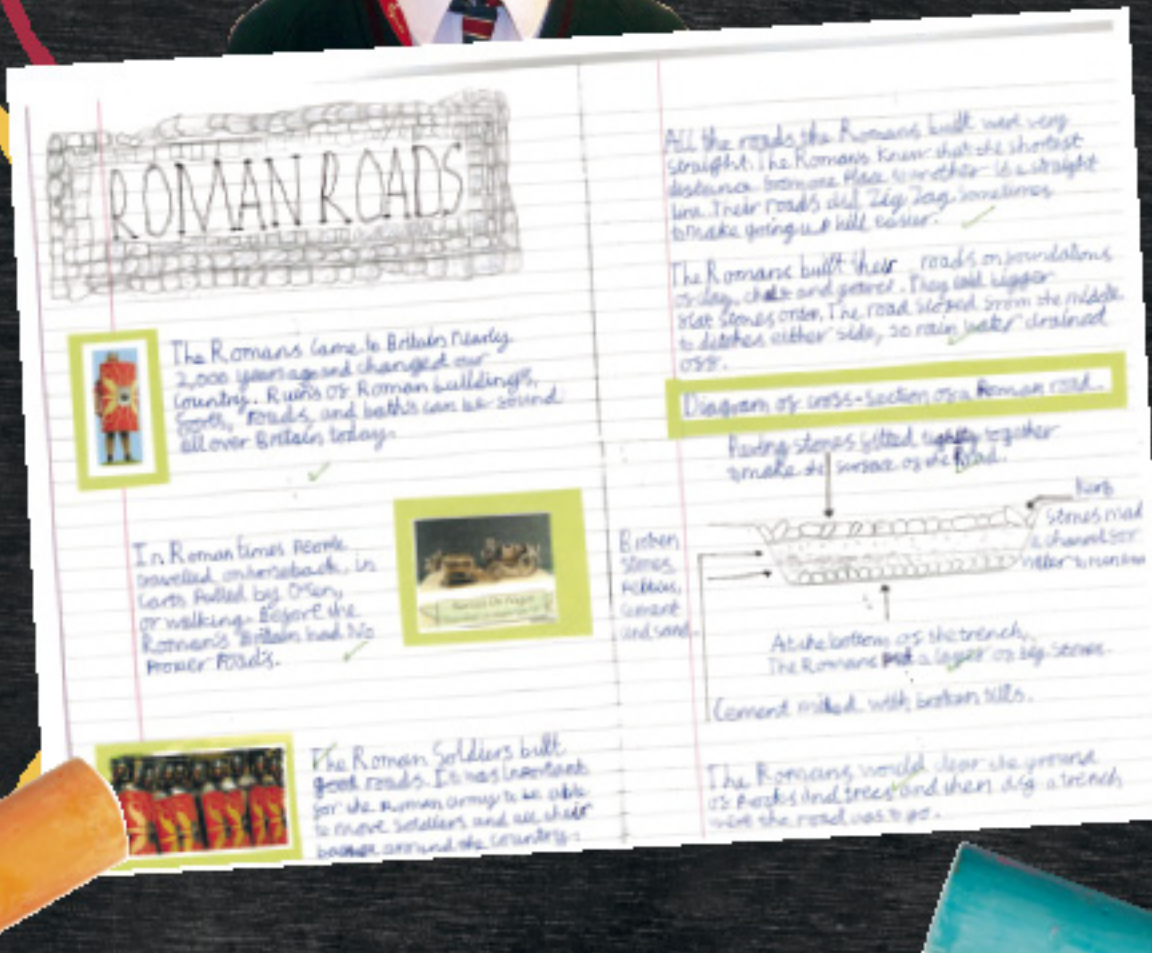 ROMAN ROADS
The Romans came to Britain nearly
2,000 years ago and changed our
Country. Ruins of Roman buildings,
forts, roads, and baths can be found
all over Britain today.
In Roman times People
travelled on horseback, in
carts Pulled by Oxen,
or walking. Before the
Roman's Britain had No
Proper Roads.
The Roman Soldiers built
good roads. It was important
for the Roman army to be able
to move Soldiers and all their
around the Country.
All the roads the Romans built were very
straight. The Romans knew that the shortest
distance from one Place to another is a straight
line. Their roads did Zig Zag sometimes
to make going up hill easier.
The Romans built their roads on foundations
of clay, chalk and gravel. They laid bigger
flat stones on top. The road sloped from the middle
to ditches either side, so rain water drained
off.
Diagram of cross-section of a Roman road.
Paving stones fitted tightly together
to make the surface of the Road.
Kerb
stones mad
a channel for
water to run
Broken
stones,
cement
and sand.
At the bottom of the trench,
The Romans put a layer of big stones.
Cement mixed with broken tills.
The Romans would clear the ground
of Rocks and trees and then dig a trench
were the road was to go.